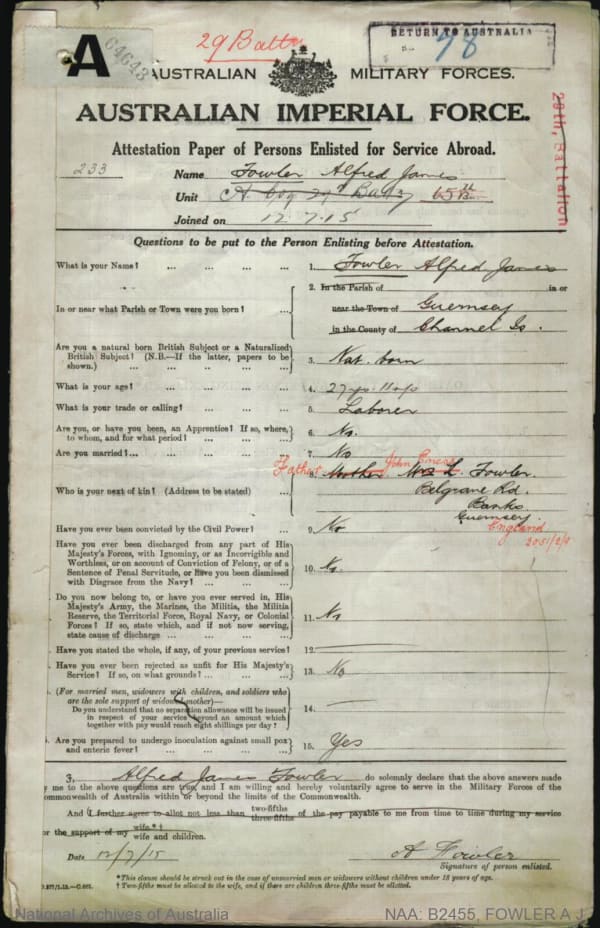 A
64643
29 Battn
RETURN TO AUSTRALIA
78
AUSTRALIAN MILITARY FORCES.
AUSTRALIAN IMPERIAL FORCE.
29th, Battalion
Attestation Paper of Persons Enlisted for Service Abroad.
233
Name Fowler Alfred James
Unit A Coy 29th Battn
Joined on 12.7.15
Questions to be put to the Person Enlisting before Attestation.
What is your Name? ... ... ... ... 1. Fowler Alfred James
In or near what Parish or Town were you born? ... 2. In the Parish of in or
near the Town of Guernsey
in the County of Channel Is.
Are you a natural born British Subject or a Naturalized
British Subject? (N.B.—If the latter, papers to be
shown.) ... ... ... ... ... 3. Nat. born
What is your age? ... ... ... ... 4. 27
What is your trade or calling? ... ... ... 5. Laborer
Are you, or have you been, an Apprentice? If so, where,
to whom, and for what period? ... ... ... 6. No.
Are you married? ... ... ... ... ... 7. No
Who is your next of kin? (Address to be stated) ... 8. Father Mother John Mrs Fowler.
Belgrave Rd.
Banks
Guernsey
England
Have you ever been convicted by the Civil Power? ... 9. No
Have you ever been discharged from any part of His
Majesty's Forces, with Ignominy, or as Incorrigible and
Worthless, or on account of Conviction of Felony, or of a
Sentence of Penal Servitude, or have you been dismissed
with Disgrace from the Navy? ... ... ... 10. No.
Do you now belong to, or have you ever served in, His
Majesty's Army, the Marines, the Militia, the Militia
Reserve, the Territorial Force, Royal Navy, or Colonial
Forces? If so, state which, and if not now serving,
state cause of discharge ... ... ... ... 11. No
Have you stated the whole, if any, of your previous service? 12. —
Have you ever been rejected as unfit for His Majesty's
Service? If so, on what grounds? ... ... ... 13. No
(For married men, widowers with children, and soldiers who
are the sole support of widowed mother)—
Do you understand that no separation allowance will be issued
in respect of your service beyond an amount which
together with pay would reach eight shillings per day? 14. —
Are you prepared to undergo inoculation against small pox
and enteric fever? ... ... ... ... ... 15. Yes
3. Alfred James Fowler do solemnly declare that the above answers made
by me to the above questions are true, and I am willing and hereby voluntarily agree to serve in the Military Forces of the
Commonwealth of Australia within or beyond the limits of the Commonwealth.
And I further agree to allot not less than two-fifths three-fifths of the pay payable to me from time to time during my service
for the support of my wife.*† wife and children.
Date 12/7/15 A Fowler
Signature of person enlisted.
*This clause should be struck out in the case of unmarried men or widowers without children under 18 years of age.
† Two-fifths must be allotted to the wife, and if there are children three-fifths must be allotted.
National Archives of Australia NAA: B2455, FOWLER A J